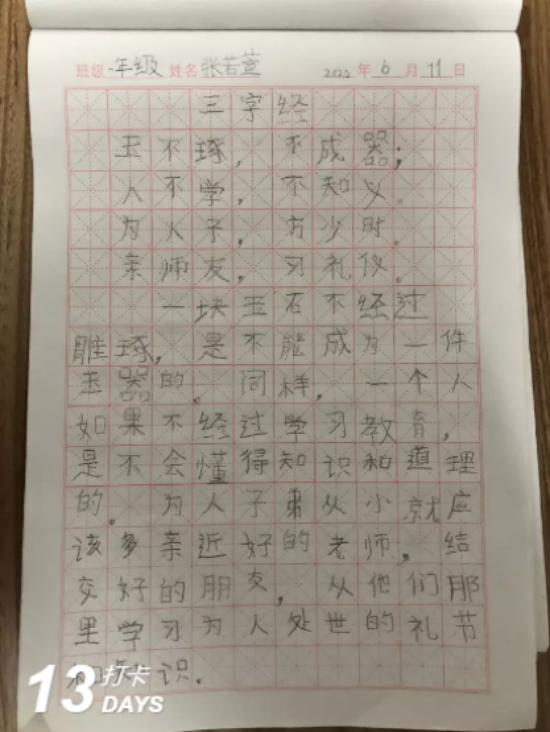 班级 一年级 姓名 张若萱 2022 年 6 月 11 日
三字经
玉不琢，不成器；
人不学，不知义。
为人子，方少时。
亲师友，习礼仪。
一块玉石不经过
雕琢，是不能成为一件
玉器的。同样，一个人
如果不经过学习教育，
是不会懂得知识和道理
的。为人子弟从小就应
该多亲近好的老师，结
交好的朋友，从他们那
里学习为人处世的礼节
和知识.
13 打卡
DAYS